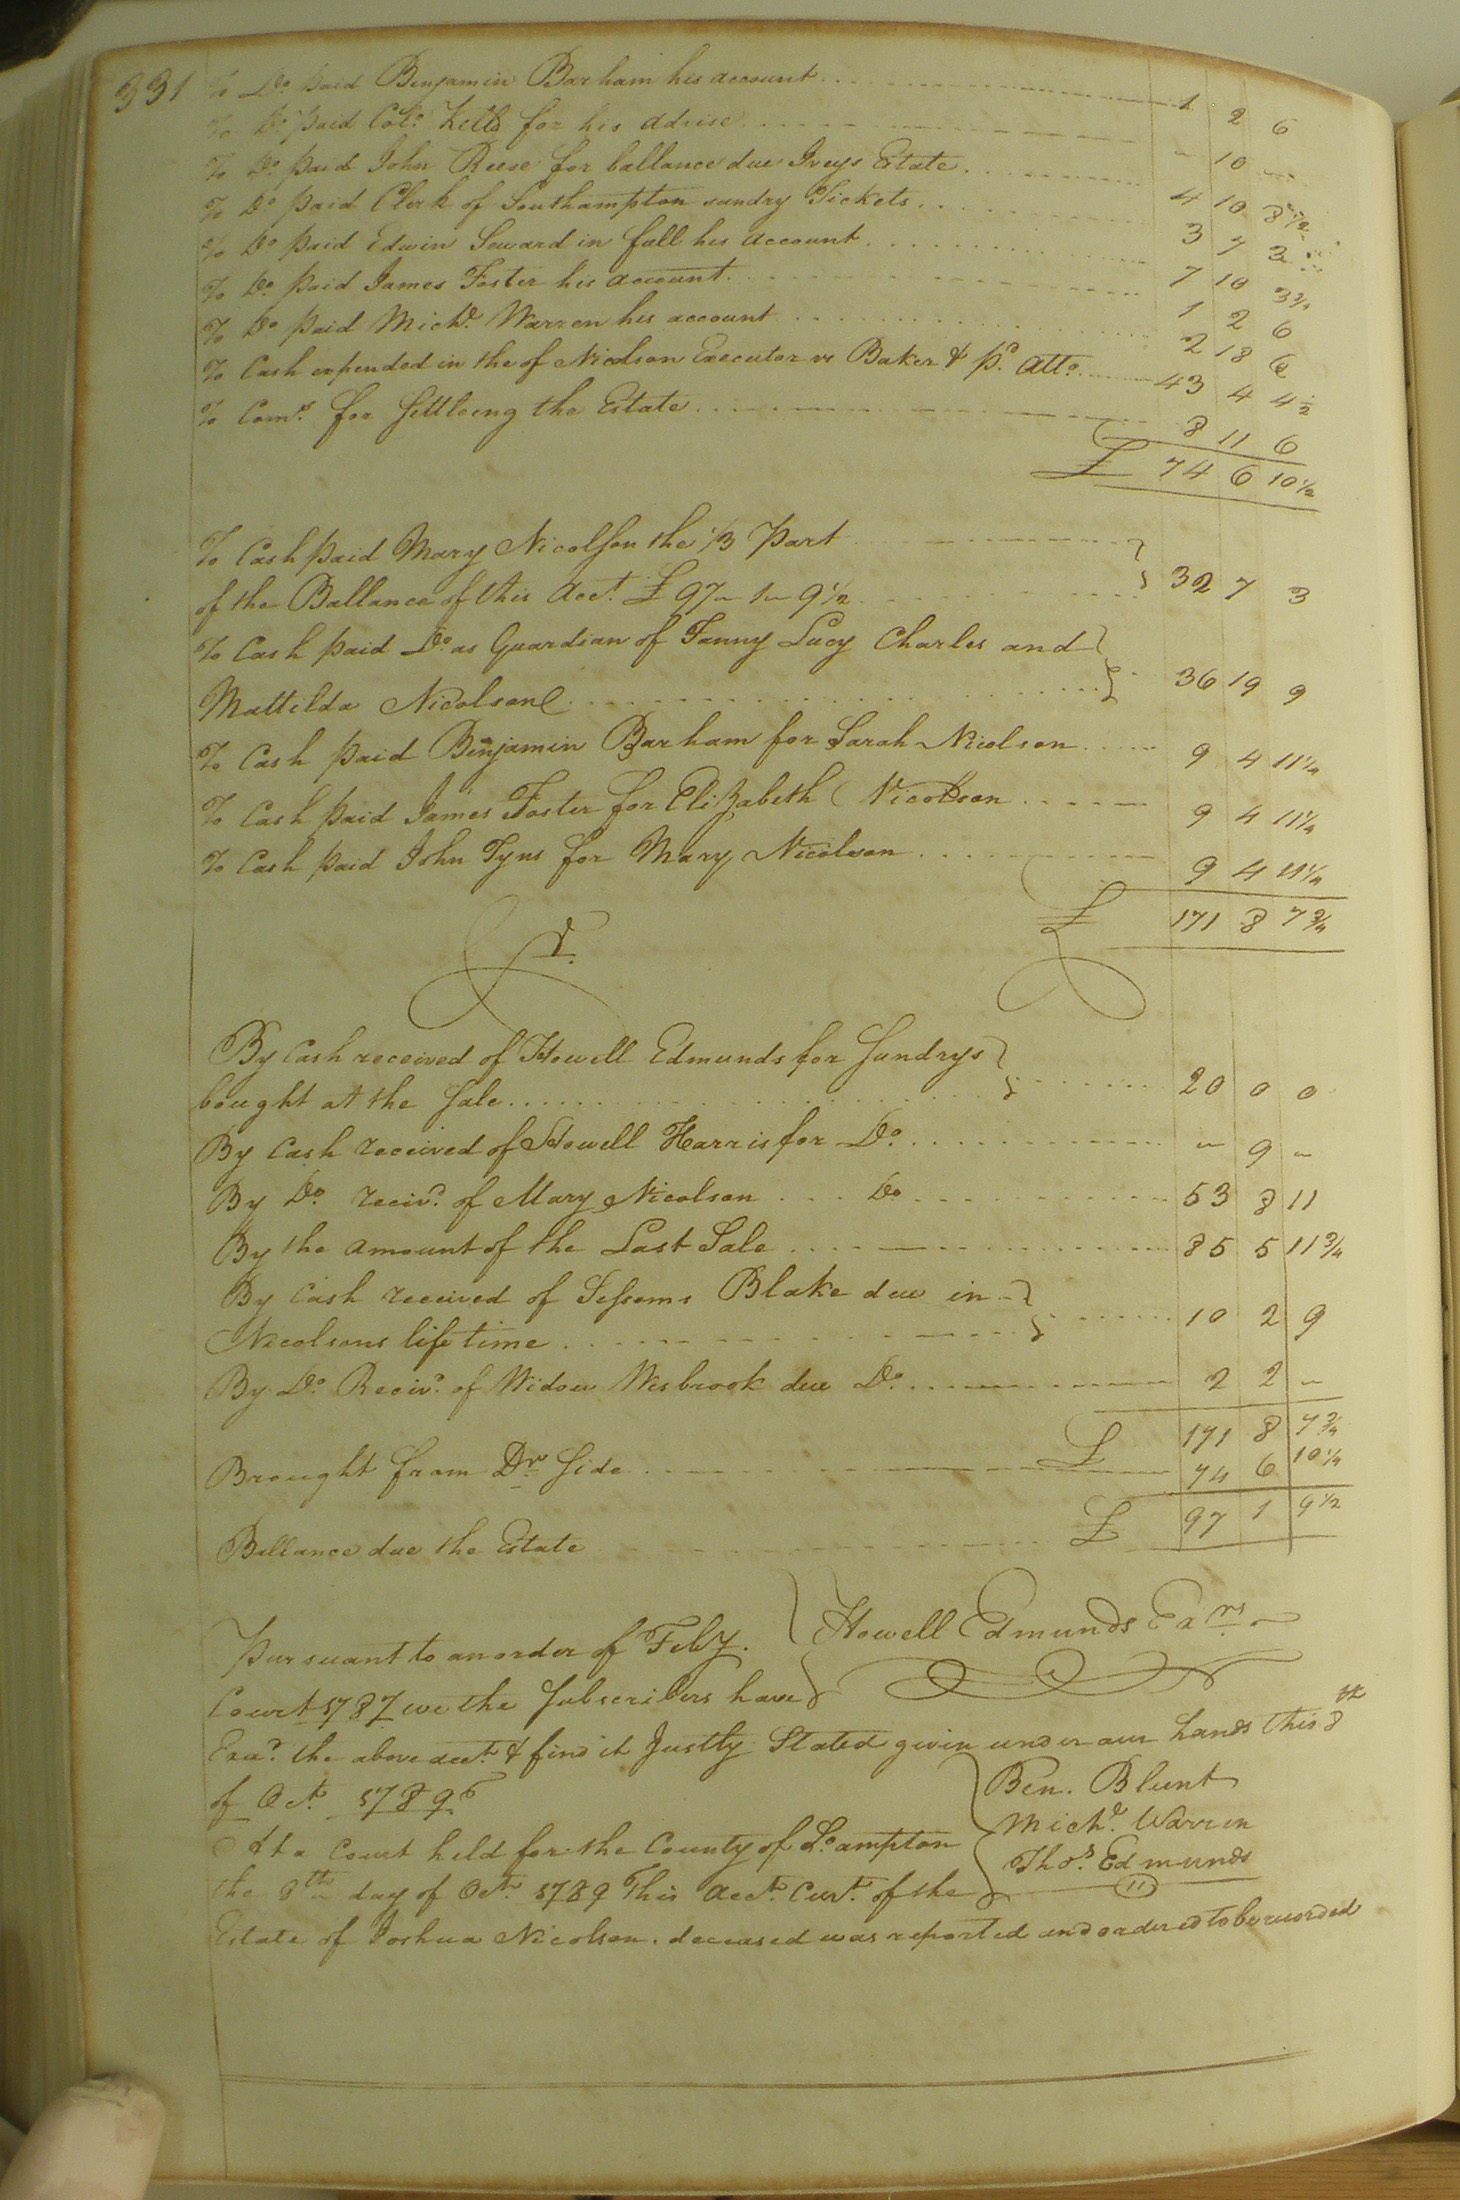 331 To Do. paid Benjamin Barham his account 1 2 6
To Do. paid Colo. Kello for his advise - 10 -
To Do. paid John Reese for ballance due Iveys Estate 4 10 8 1/2
To Do. paid Clerk of Southampton sundry Tickets 3 7 3
To Do. paid Edwin Seward in full his account 7 10 3 3/4
To Do. paid James Foster his account 1 2 6
To Do. paid Michl. Warren his account 2 18 6
To Cash expended in the of Nicolson Executor vs Baker & pd. Atto. 43 4 4 1/2
To Coms. for Settleing the Estate 8 11 6
£ 74 6 10 1/2
To Cash paid Mary Nicolson the 1/3 Part
of the Ballance of this Acct. £ 97 - 1 - 9 1/2 32 7 3
To Cash paid Do. as Guardian of Fanny Lucy Charles and
Mattilda Nicolson 36 19 9
To Cash paid Benjamin Barham for Sarah Nicolson 9 4 11 1/4
To Cash paid James Foster for Elizabeth Nicolson 9 4 11 1/4
To Cash paid John Tyns for Mary Nicolson 9 4 11 1/4
£ 171 8 7 3/4
Cr.
By Cash received of Howell Edmunds for Sundrys
bought at the Sale 20 0 0
By Cash received of Howell Harris for Do. - 9 -
By Do. receivd. of Mary Nicolson Do 53 8 11
By the amount of the Last Sale 85 5 11 3/4
By Cash received of Sessoms Blake due in
Nicolsons life time 10 2 9
By Do. Receivd. of Widow Wesbrook due Do. 2 2 -
£ 171 8 7 3/4
Brought from Dr. Side 74 6 10 1/4
Ballance due the Estate £ 97 1 9 1/2
Howell Edmunds Exrs.
Pursuant to an order of Feby.
Court 1787 we the Subscribers have
Exad. the above acct. & find it Justly Stated given under our hands this 8th
of Octr. 1789
Ben. Blunt
Michl. Warren
Thos. Edmunds
At a Court held for the County of So.ampton
the 8th day of Octr. 1789 This Acct. Curt. of the
Estate of Joshua Nicolson. deceased was reported and ordered to be recorded